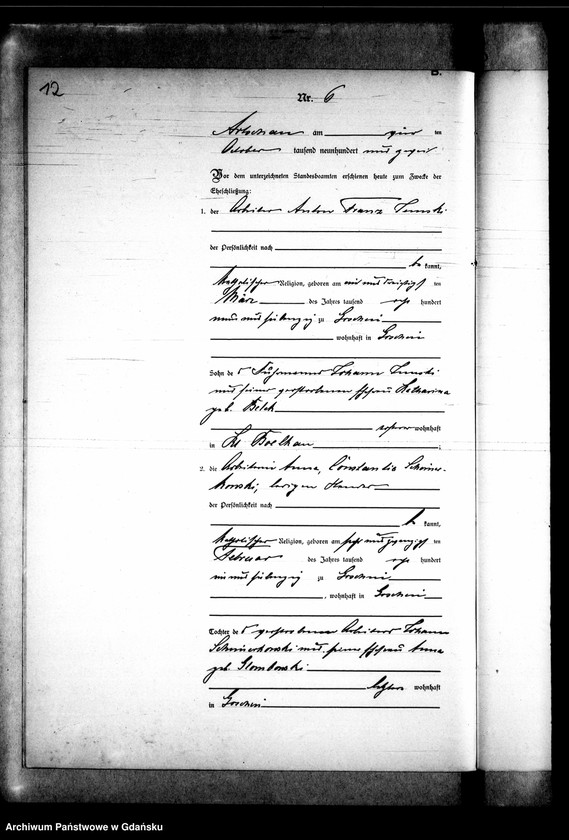 12
B.
Nr. 6
Artschau am vier ten
October tausend neunhundert und zwei
Vor dem unterzeichneten Standesbeamten erschienen heute zum Zwecke der
Eheschließung:
1. der Arbeiter Anton Franz
der Persönlichkeit nach
be kannt,
katholischer Religion, geboren am ein und dreißigs ten
März des Jahres tausend acht hundert
neun und siebenzig zu Goschin
wohnhaft in Goschin
Sohn des Fuhrmanns Johann
und seiner verstorbenen Ehefrau Katharina
geb.
ersterer wohnhaft
in Kl. Boelkau ;
2. die Arbeiterin Anna, Constantia
ledigen Standes
der Persönlichkeit nach
be kannt,
katholischer Religion, geboren am sechs und zwanzigs ten
Februar des Jahres tausend acht hundert
und siebenzig zu Goschin
, wohnhaft in Goschin
Tochter des verstorbenen Arbeiters Johann
und seiner Ehefrau Anna
geb. Glombowski
letztere wohnhaft
in Goschin
Archiwum Państwowe w Gdańsku